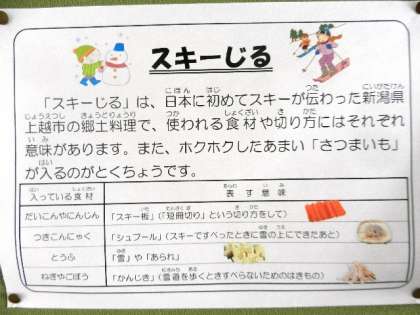 スキーじる
「スキーじる」は、日本に初めてスキーが伝わった新潟県
上越市の郷土料理で、使われる食材や切り方にはそれぞれ
意味があります。また、ホクホクしたあまい「さつまいも」
が入るのがとくちょうです。
入っている食材 表す意味
だいこんやにんじん 「スキー板」(「短冊切り」という切り方をして)
つきこんにゃく 「シュプール」(スキーですべったときに雪の上にできたあと)
とうふ 「雪」や「あられ」
ねぎやごぼう 「かんじき」(雪道を歩くときすべらないためのはきもの)